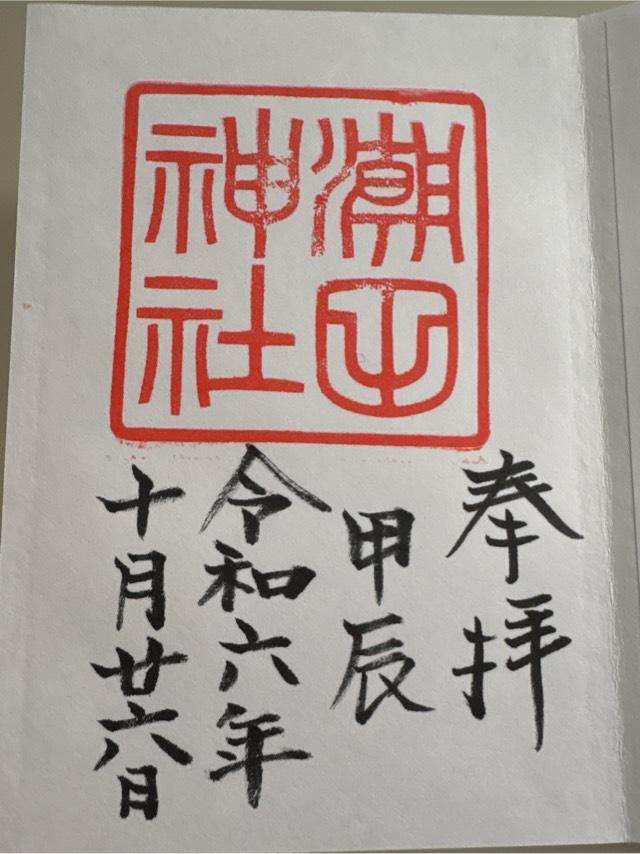 潮田
神社
奉拝
甲辰
令和六年
十月廿六日